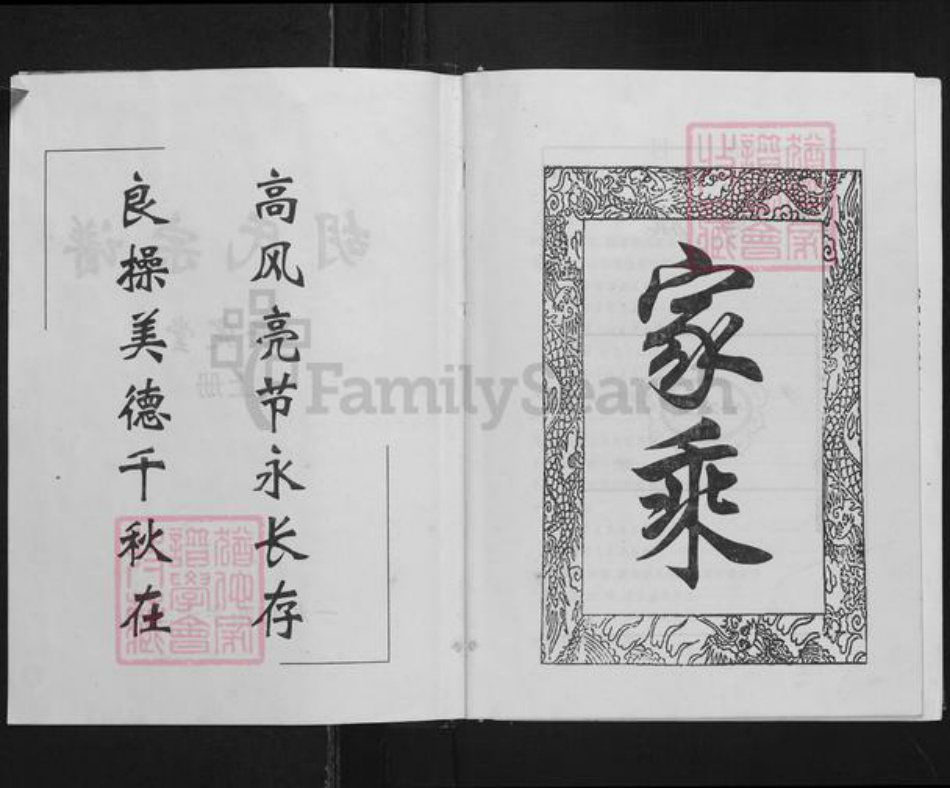 高风亮节永长存
良操美德千秋在
家乘
胡氏宗谱
上册
FamilySearch